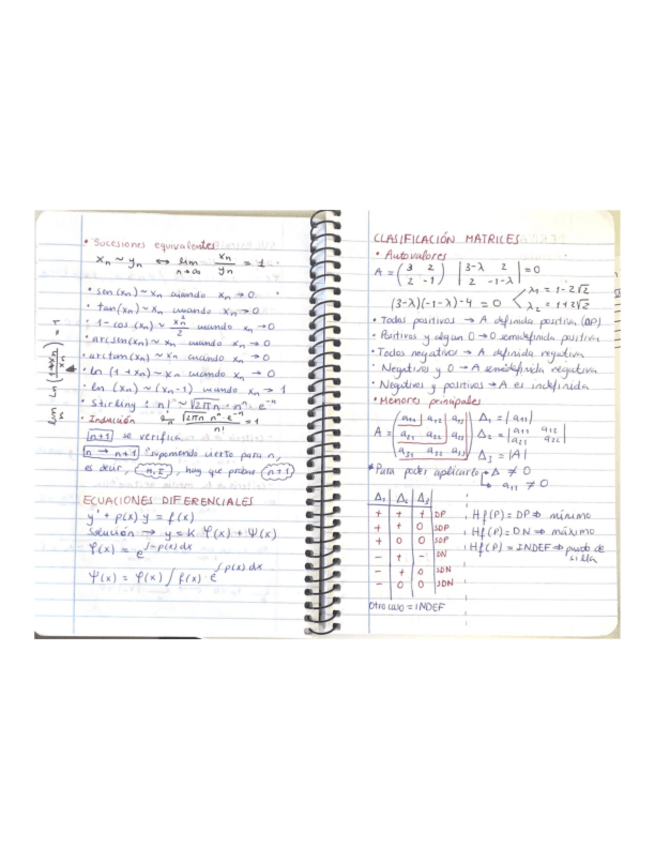 • Sucesiones equivalentes
xn ~ yn ⇔ lim n→∞ xn/yn = 1
• sen(xn) ~ xn cuando xn → 0
• tan(xn) ~ xn cuando xn → 0
• 1 - cos(xn) ~ xn²/2 cuando xn → 0
• arcsen(xn) ~ xn cuando xn → 0
• arctan(xn) ~ xn cuando xn → 0
• ln(1+xn) ~ xn cuando xn → 0
• ln(xn) ~ (xn-1) cuando xn → 1
• Stirling: n! ~ √2πn · nⁿ · e⁻ⁿ
• Inducción √2πn nⁿ e⁻ⁿ / n! = 1
n+1 se verifica
n → n+1 Suponiendo cierto para n,
es decir, hay que probar n+1
ECUACIONES DIFERENCIALES
y' + p(x) y = f(x)
Solución → y = K · φ(x) + Ψ(x)
φ(x) = e^∫-p(x)dx
Ψ(x) = φ(x) ∫ f(x) · e^∫p(x)dx
CLASIFICACIÓN MATRICES
• Autovalores
A = (3 2 / 2 -1) |3-λ 2 / 2 -1-λ| = 0
(3-λ)(-1-λ)-4 = 0 λ1 = 1-2√2 λ2 = 1+2√2
• Todos positivos → A definida positiva (DP)
• Positivos y algun 0 → semidefinida positiva
• Todos negativos → A definida negativa
• Negativos y 0 → A semidefinida negativa
• Negativos y positivos → A es indefinida
• Menores principales
A = (a11 a12 a13 / a21 a22 a23 / a31 a32 a33) Δ1 = |a11| Δ2 = |a11 a12 / a21 a22| Δ3 = |A|
* Para poder aplicarlo → Δ ≠ 0
↳ a11 ≠ 0
Δ1 Δ2 Δ3
+ + + DP
+ + 0 SDP
+ 0 0 SDP
- + - DN
- + 0 SDN
- 0 0 SDN
Otro caso = INDEF
Hf(P) = DP ⇒ mínimo
Hf(P) = DN ⇒ máximo
Hf(P) = INDEF ⇒ punto de
silla